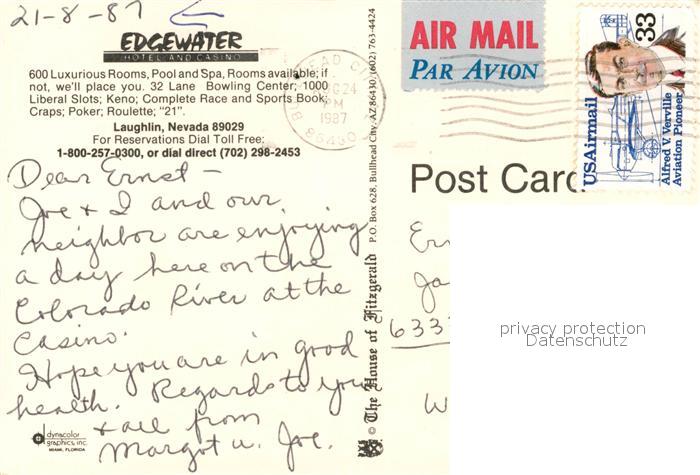 21-8-87
EDGEWATER
HOTEL AND CASINO
600 Luxurious Rooms, Pool and Spa, Rooms available; if
not, we'll place you. 32 Lane Bowling Center; 1000
Liberal Slots; Keno; Complete Race and Sports Book;
Craps; Poker; Roulette; "21".
Laughlin, Nevada 89029
For Reservations Dial Toll Free:
1-800-257-0300, or dial direct (702) 298-2453
Dear Ernst –
Joe & I and our
neighbor are enjoying
a day here on the
Colorado River at the
Casino.
Hope you are in good
health. Regards to you
& all from
Margot u. Joe.
dynacolor
graphics, inc.
MIAMI, FLORIDA
© The House of Fitzgerald P.O. Box 628, Bullhead City, AZ 86430, (602) 763-4424
AUG 24
PM
1987
86430
AIR MAIL
PAR AVION
USAirmail
33
Alfred V. Verville
Aviation Pioneer
Post Card
Er
Ja
633
W
privacy protection
Datenschutz